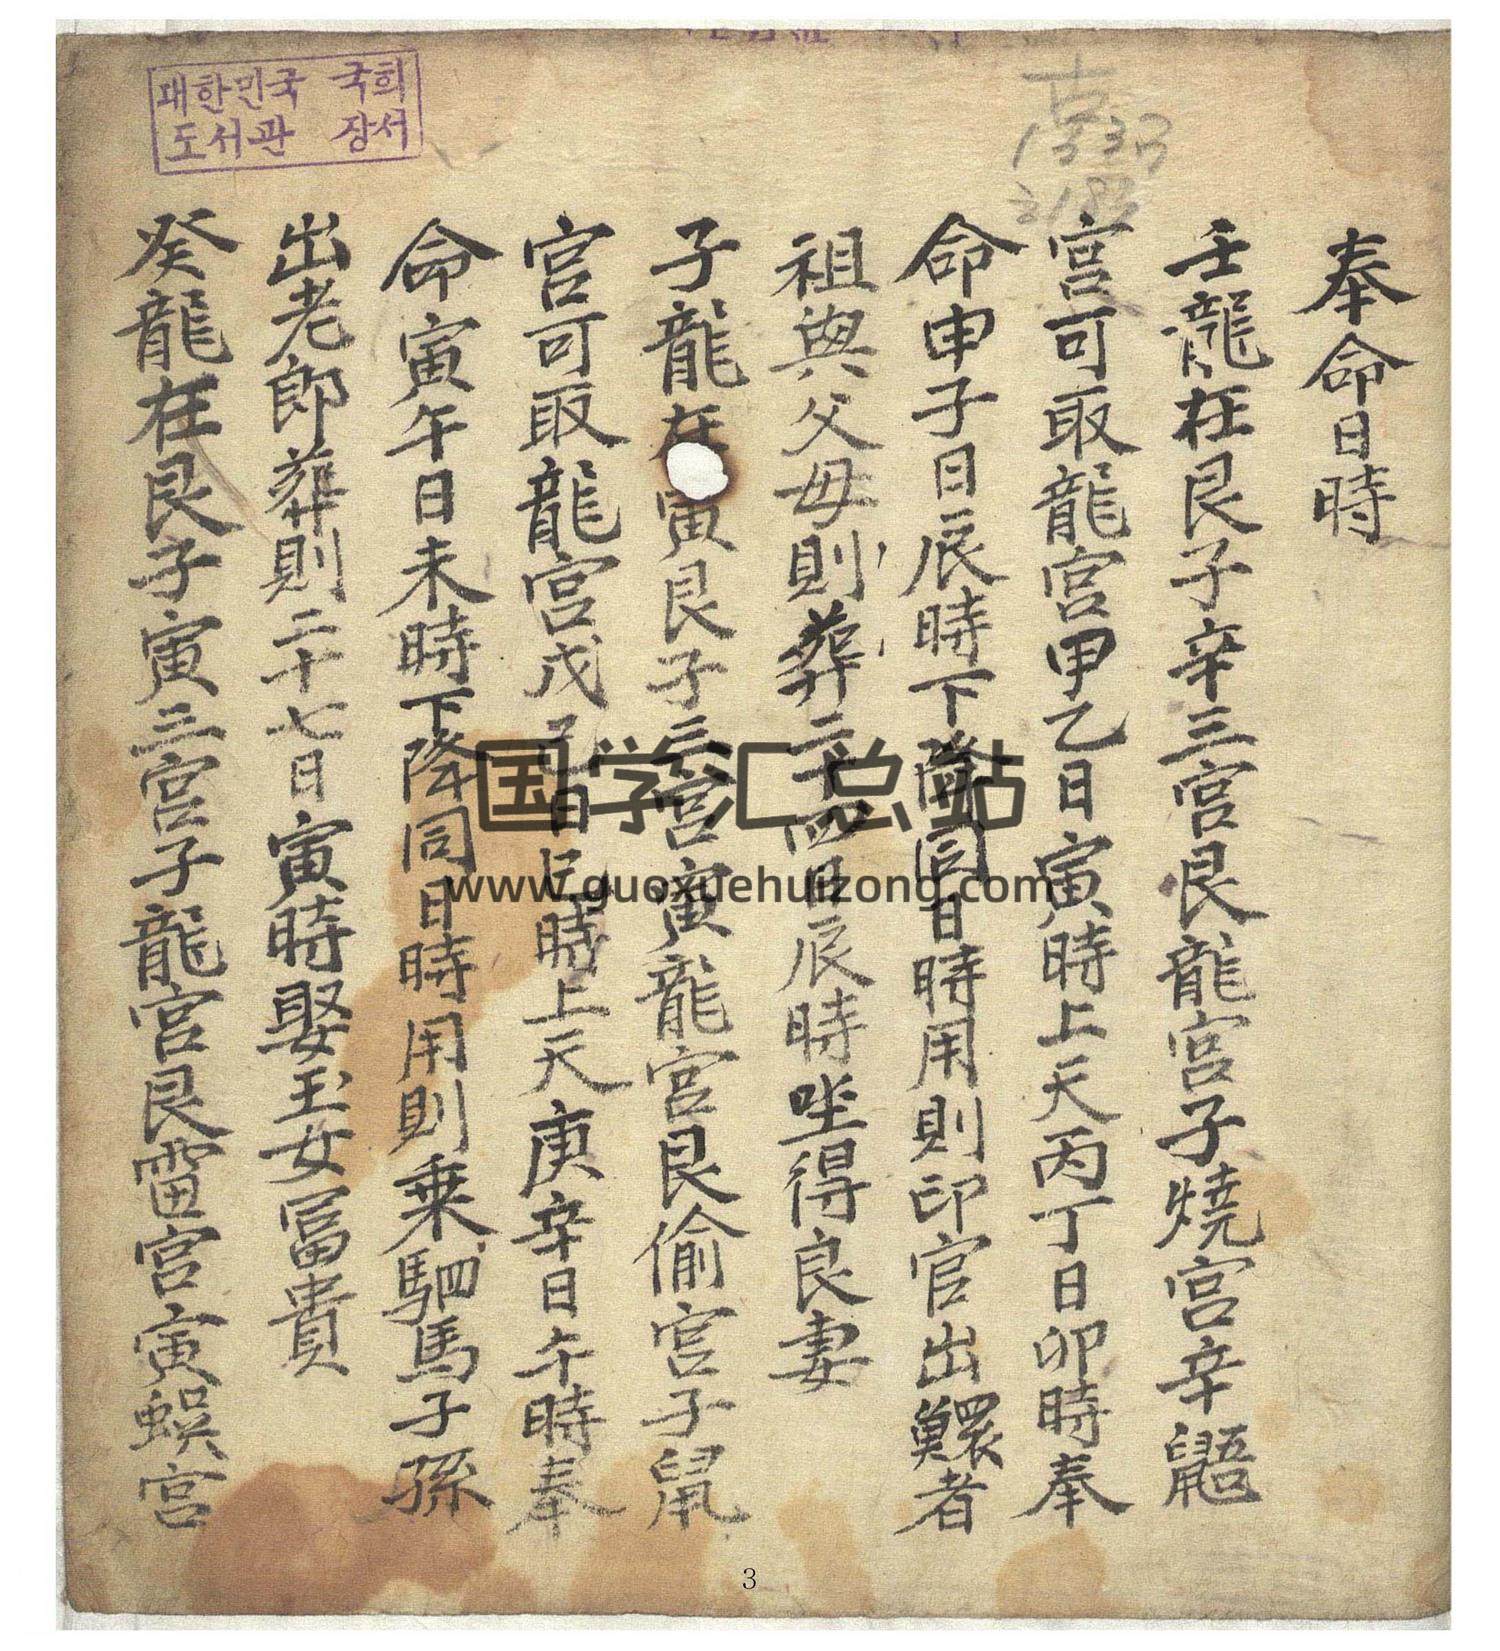 대한민국 국회
도서관 장서
古
奉命日時
壬龍在艮子辛三宮艮龍宮子燒宮辛鼯
宮可取龍宮甲乙日寅時上天丙丁日卯時奉
命申子日辰時下降同日時用則印官出鰥者
祖與父母則葬三十四日辰時坐得良妻
子龍在寅艮子三宮寅龍宮艮偷宮子鼠
宮可取龍宮戊己日巳時上天庚辛日午時奉
命寅午日未時下降同日時用則乘駟馬子孫
出老郎葬則二十七日寅時娶玉女冨貴
癸龍在艮子寅三宮子龍宮艮雷宮寅蜈宮
国学汇总站
www.guoxuehuizong.com
3